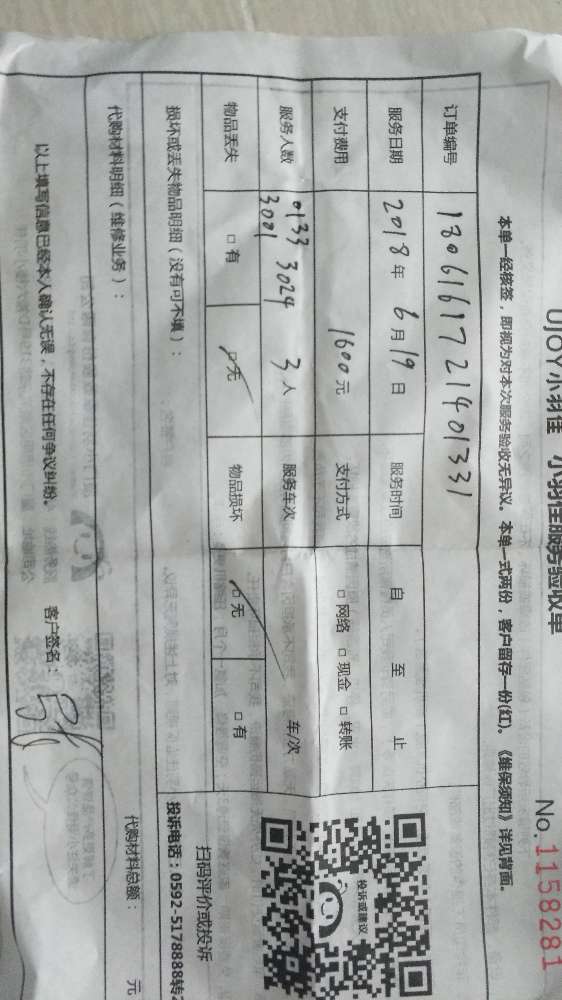 UJOY小羽佳 小羽佳服务验收单
No.1158281
本单一经核签，即视为对本次服务验收无异议。本单一式两份，客户留存一份(红)。《维保须知》详见背面。
订单编号 1806161721401331
服务日期 2018年6月19日 服务时间 自 至 止
支付费用 1600元 支付方式 □网络 □现金 □转账
服务人数 0133 3024 3001 3人 服务车次 车/次
物品丢失 □有 □无 物品损坏 □无 □有
损坏或丢失物品明细（没有可不填）：
投诉或建议
扫码评价或投诉
投诉电话：0592-5178888转2
代购材料明细（维修业务）：
代购材料总额： 元
以上填写信息已经本人确认无误，不存在任何争议纠纷。 客户签名：